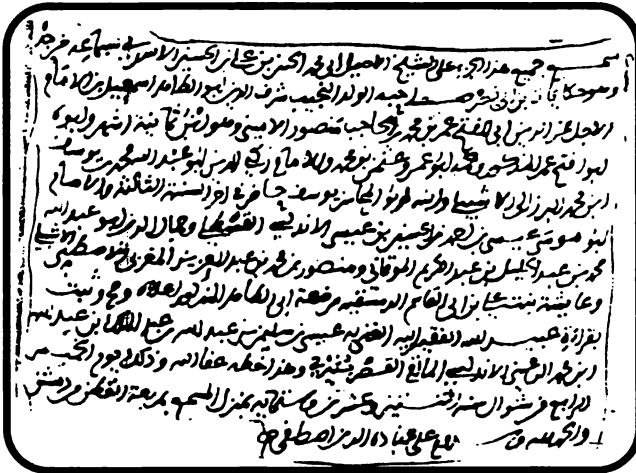 سمع جميع هذا الجزء على الشيخ الاصيل ابي محمد الحسن بن علي بن الحسين الاسدي بسماعه من جده
وهو حكايات بن ابي نصر صاحبه الولد النجيب شرف الدين ابو الطاهر اسمعيل بن الامام
الاجل عز الدين ابي الفتح عمر بن محمد بن الحاجب منصور الاميني وهو ابن ثمانية اشهر وابوه
ابو الفتح عمر المذكور ابو عمرو عثمن بن محمد والامام زكي الدين ابو عبد الله محمد بن يوسف
ابن محمد البرزالي الاشبيلي وابنه ابو المحاسن يوسف حاضر في اخر السنة الثالثة والامام
ابو موسى عيسى بن احمد بن عيسى الاندلسي وجمال الدين ابو عبد الله
محمد بن عبد الجليل بن عبد الكريم الموقاني ومنصور بن محمد بن عبد العزيز المغربي
وعايشة بنت ابي القاسم الدمشقية مرضعة ابي الطاهر المذكور اعلاه وصح وثبت
بقراءة عبيد الله الفقير اليه الغني به عيسى بن سليمن بن عبد الله بن عبد الملك بن عبد الله
ابن محمد الرعيني الاندلسي المالقي وهذا خطه عفا الله وذلك يوم الخميس
الرابع من شوال سنة اثنتين وعشرين وستمائة بمنزل المسمع بمربعة القطن من دمشق
والحمد لله وسلام على عباده الذين اصطفى